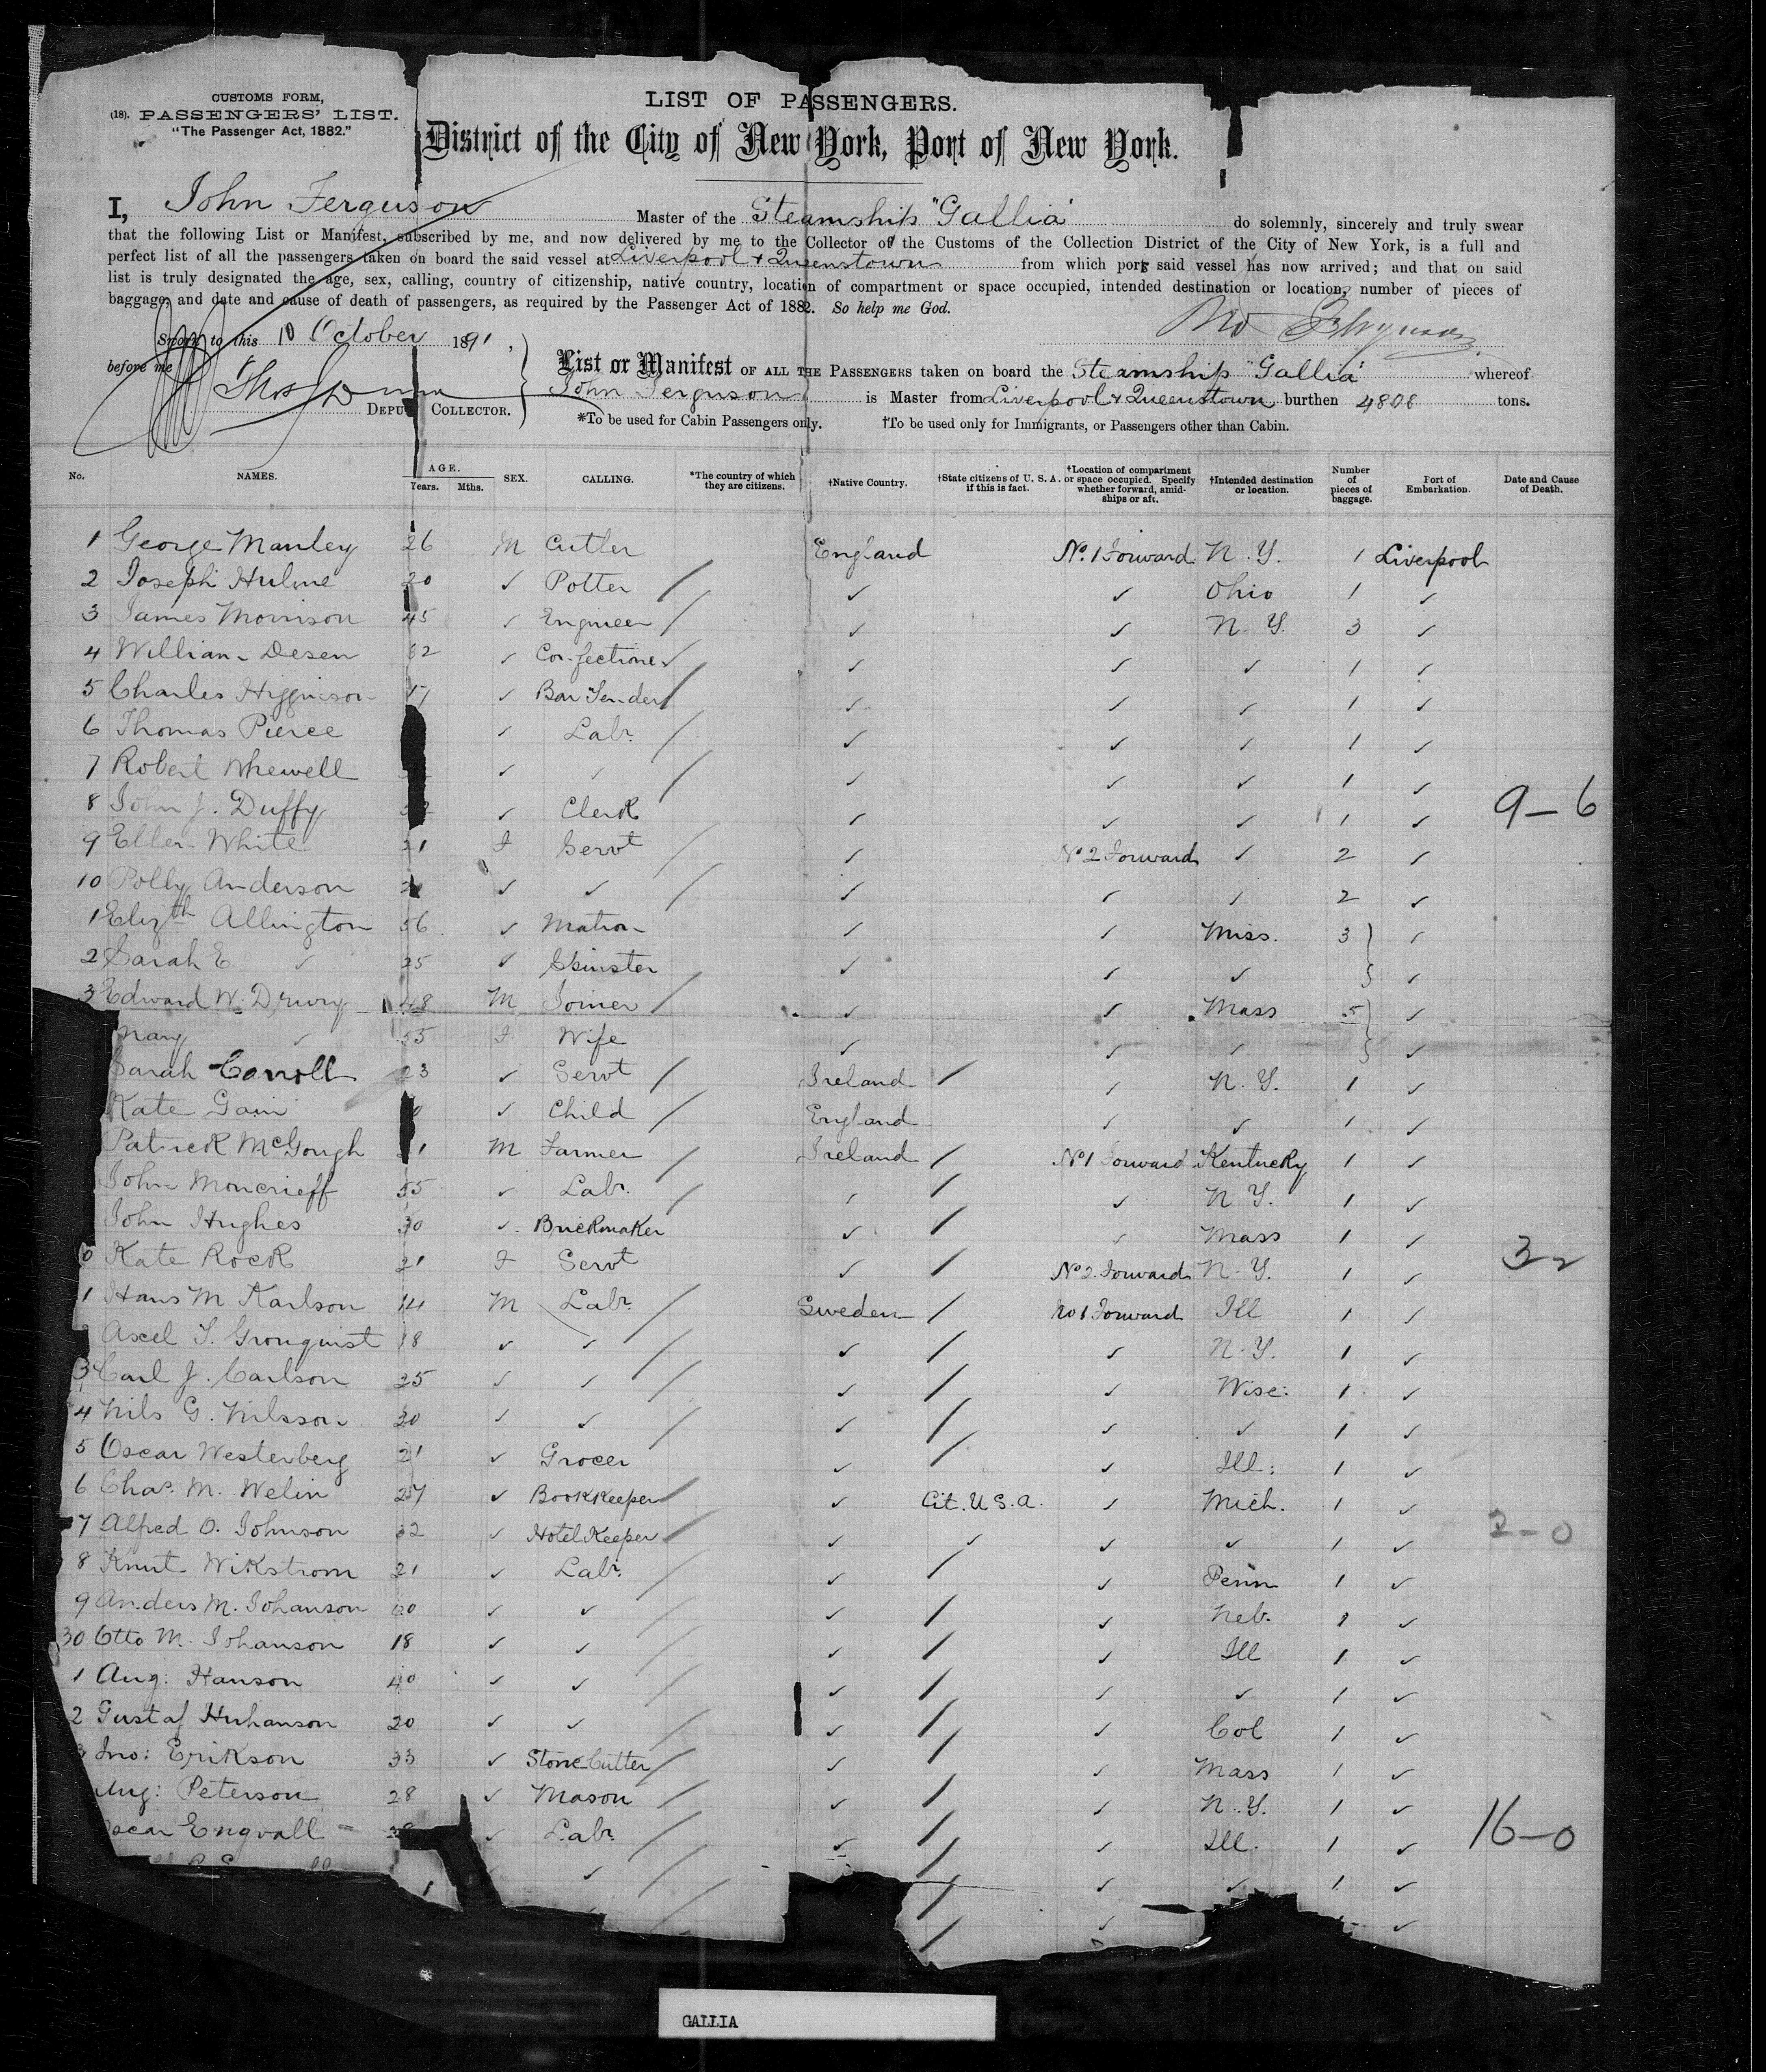 CUSTOMS FORM,
(18). PASSENGERS' LIST.
"The Passenger Act, 1882."
LIST OF PASSENGERS.
District of the City of New York, Port of New York.
I, John Ferguson Master of the Steamship "Gallia" do solemnly, sincerely and truly swear
that the following List or Manifest, subscribed by me, and now delivered by me to the Collector of the Customs of the Collection District of the City of New York, is a full and
perfect list of all the passengers taken on board the said vessel at Liverpool & Queenstown from which ports said vessel has now arrived; and that on said
list is truly designated the age, sex, calling, country of citizenship, native country, location of compartment or space occupied, intended destination or location, number of pieces of
baggage, and date and cause of death of passengers, as required by the Passenger Act of 1882. So help me God.
Sworn to this 10 October 1891,
before me
DEPUTY COLLECTOR.
List or Manifest OF ALL THE PASSENGERS taken on board the Steamship "Gallia" whereof
John Ferguson is Master from Liverpool & Queenstown burthen 4808 tons.
*To be used for Cabin Passengers only. †To be used only for Immigrants, or Passengers other than Cabin.
No. NAMES. AGE. Years. Mths. SEX. CALLING. *The country of which they are citizens. †Native Country. †State citizens of U. S. A. if this is fact. †Location of compartment or space occupied. Specify whether forward, amidships or aft. †Intended destination or location. Number of pieces of baggage. Port of Embarkation. Date and Cause of Death.
1 George Manley 26 M Cutler England No. 1 Forward N. Y. 1 Liverpool
2 Joseph Hulme 20 ✓ Potter / ✓ ✓ Ohio 1 ✓
3 James Morrison 45 ✓ Engineer / ✓ ✓ N. Y. 3 ✓
4 William Desen ✓ Confectioner ✓ ✓ ✓ 1 ✓
5 Charles Higginson ✓ Bar Tender / ✓ ✓ ✓ 1 ✓
6 Thomas Pierce ✓ Labr. / ✓ ✓ ✓ 1 ✓
7 Robert Whewell ✓ ✓ / ✓ ✓ ✓ 1 ✓
8 John J. Duffy ✓ Clerk ✓ ✓ ✓ 1 ✓ 9-6
9 Ellen White 21 F Servt / ✓ No 2 Forward ✓ 2 ✓
10 Polly Anderson ✓ ✓ / ✓ ✓ ✓ 2 ✓
1 Elizth Allington 56 ✓ Matron ✓ ✓ Miss. 3 ✓
2 Sarah E. ✓ 25 ✓ Spinster ✓ ✓ ✓ ✓
3 Edward W. Drury 48 M Joiner / ✓ ✓ Mass 5 ✓
Mary ✓ 55 F Wife ✓ ✓ ✓ ✓
Sarah Carroll 23 ✓ Servt / Ireland / ✓ N. Y. 1 ✓
Kate ✓ Child / England ✓ ✓ 1 ✓
Patrick McGough M Farmer / Ireland / No 1 Forward Kentucky 1 ✓
John Moncrieff 55 ✓ Labr. / ✓ / ✓ N. Y. 1 ✓
John Hughes 30 ✓ Brickmaker ✓ / ✓ Mass 1 ✓
0 Kate Rock 21 F Servt ✓ / No 2 Forward N. Y. 1 ✓ 32
1 Hans M Karlson 14 M Labr. / Sweden / No 1 Forward Ill 1 ✓
Axel T. Gronquist 18 ✓ ✓ / ✓ / ✓ N. Y. 1 ✓
3 Carl J. Carlson 25 ✓ ✓ / ✓ / ✓ Wisc: 1 ✓
4 Nils G. Nilsson 20 ✓ ✓ / ✓ / ✓ ✓ 1 ✓
5 Oscar Westerberg 21 ✓ Grocer ✓ / ✓ Ill: 1 ✓
6 Chas. M. Welin 27 ✓ Bookkeeper / ✓ Cit. U.S.A. ✓ Mich. 1 ✓
7 Alfred O. Johnson 32 ✓ Hotel Keeper / ✓ ✓ ✓ ✓ 1 ✓ 2-0
8 Knut Wikstrom 21 ✓ Labr. / ✓ / ✓ Penn 1 ✓
9 Anders M. Johanson ✓ ✓ / ✓ / ✓ Neb. 1 ✓
30 Otto M. Johanson 18 ✓ ✓ / ✓ / ✓ Ill 1 ✓
1 Aug: Hanson 40 ✓ ✓ / ✓ / ✓ ✓ 1 ✓
2 Gustaf Huhanson 20 ✓ ✓ / ✓ / ✓ Col 1 ✓
3 Jno: Erikson 33 ✓ Stone Cutter / ✓ / ✓ Mass 1 ✓
Aug: Peterson 28 ✓ Mason / ✓ / ✓ N. Y. 1 ✓
Oscar Engvall ✓ Labr. / ✓ / ✓ Ill. 1 ✓ 16-0
✓ / / ✓ ✓ 1 ✓
GALLIA